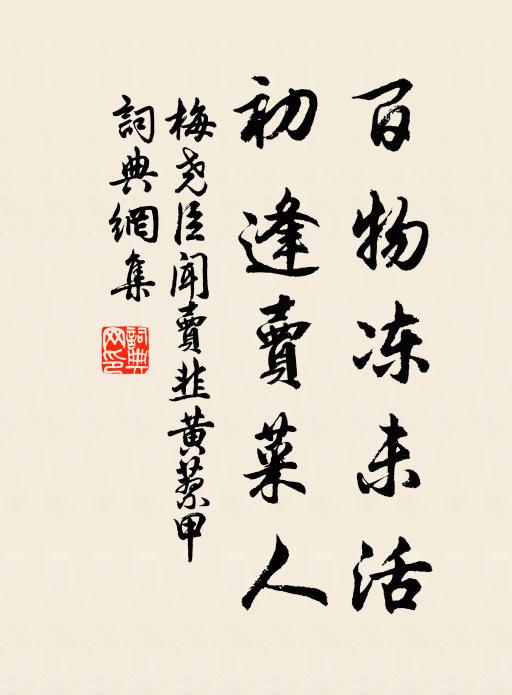 百物冻未活
初逢賣菜人
梅尧臣闻賣韭黄蓼甲
詞典網集
詞典网印